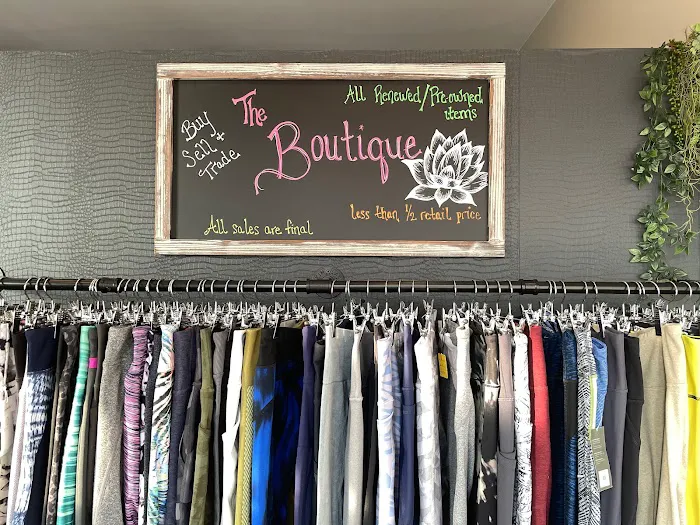 The
Boutique
Buy
Sell +
Trade
All Renewed/Pre-owned
items
less than 1/2 retail price
All sales are final